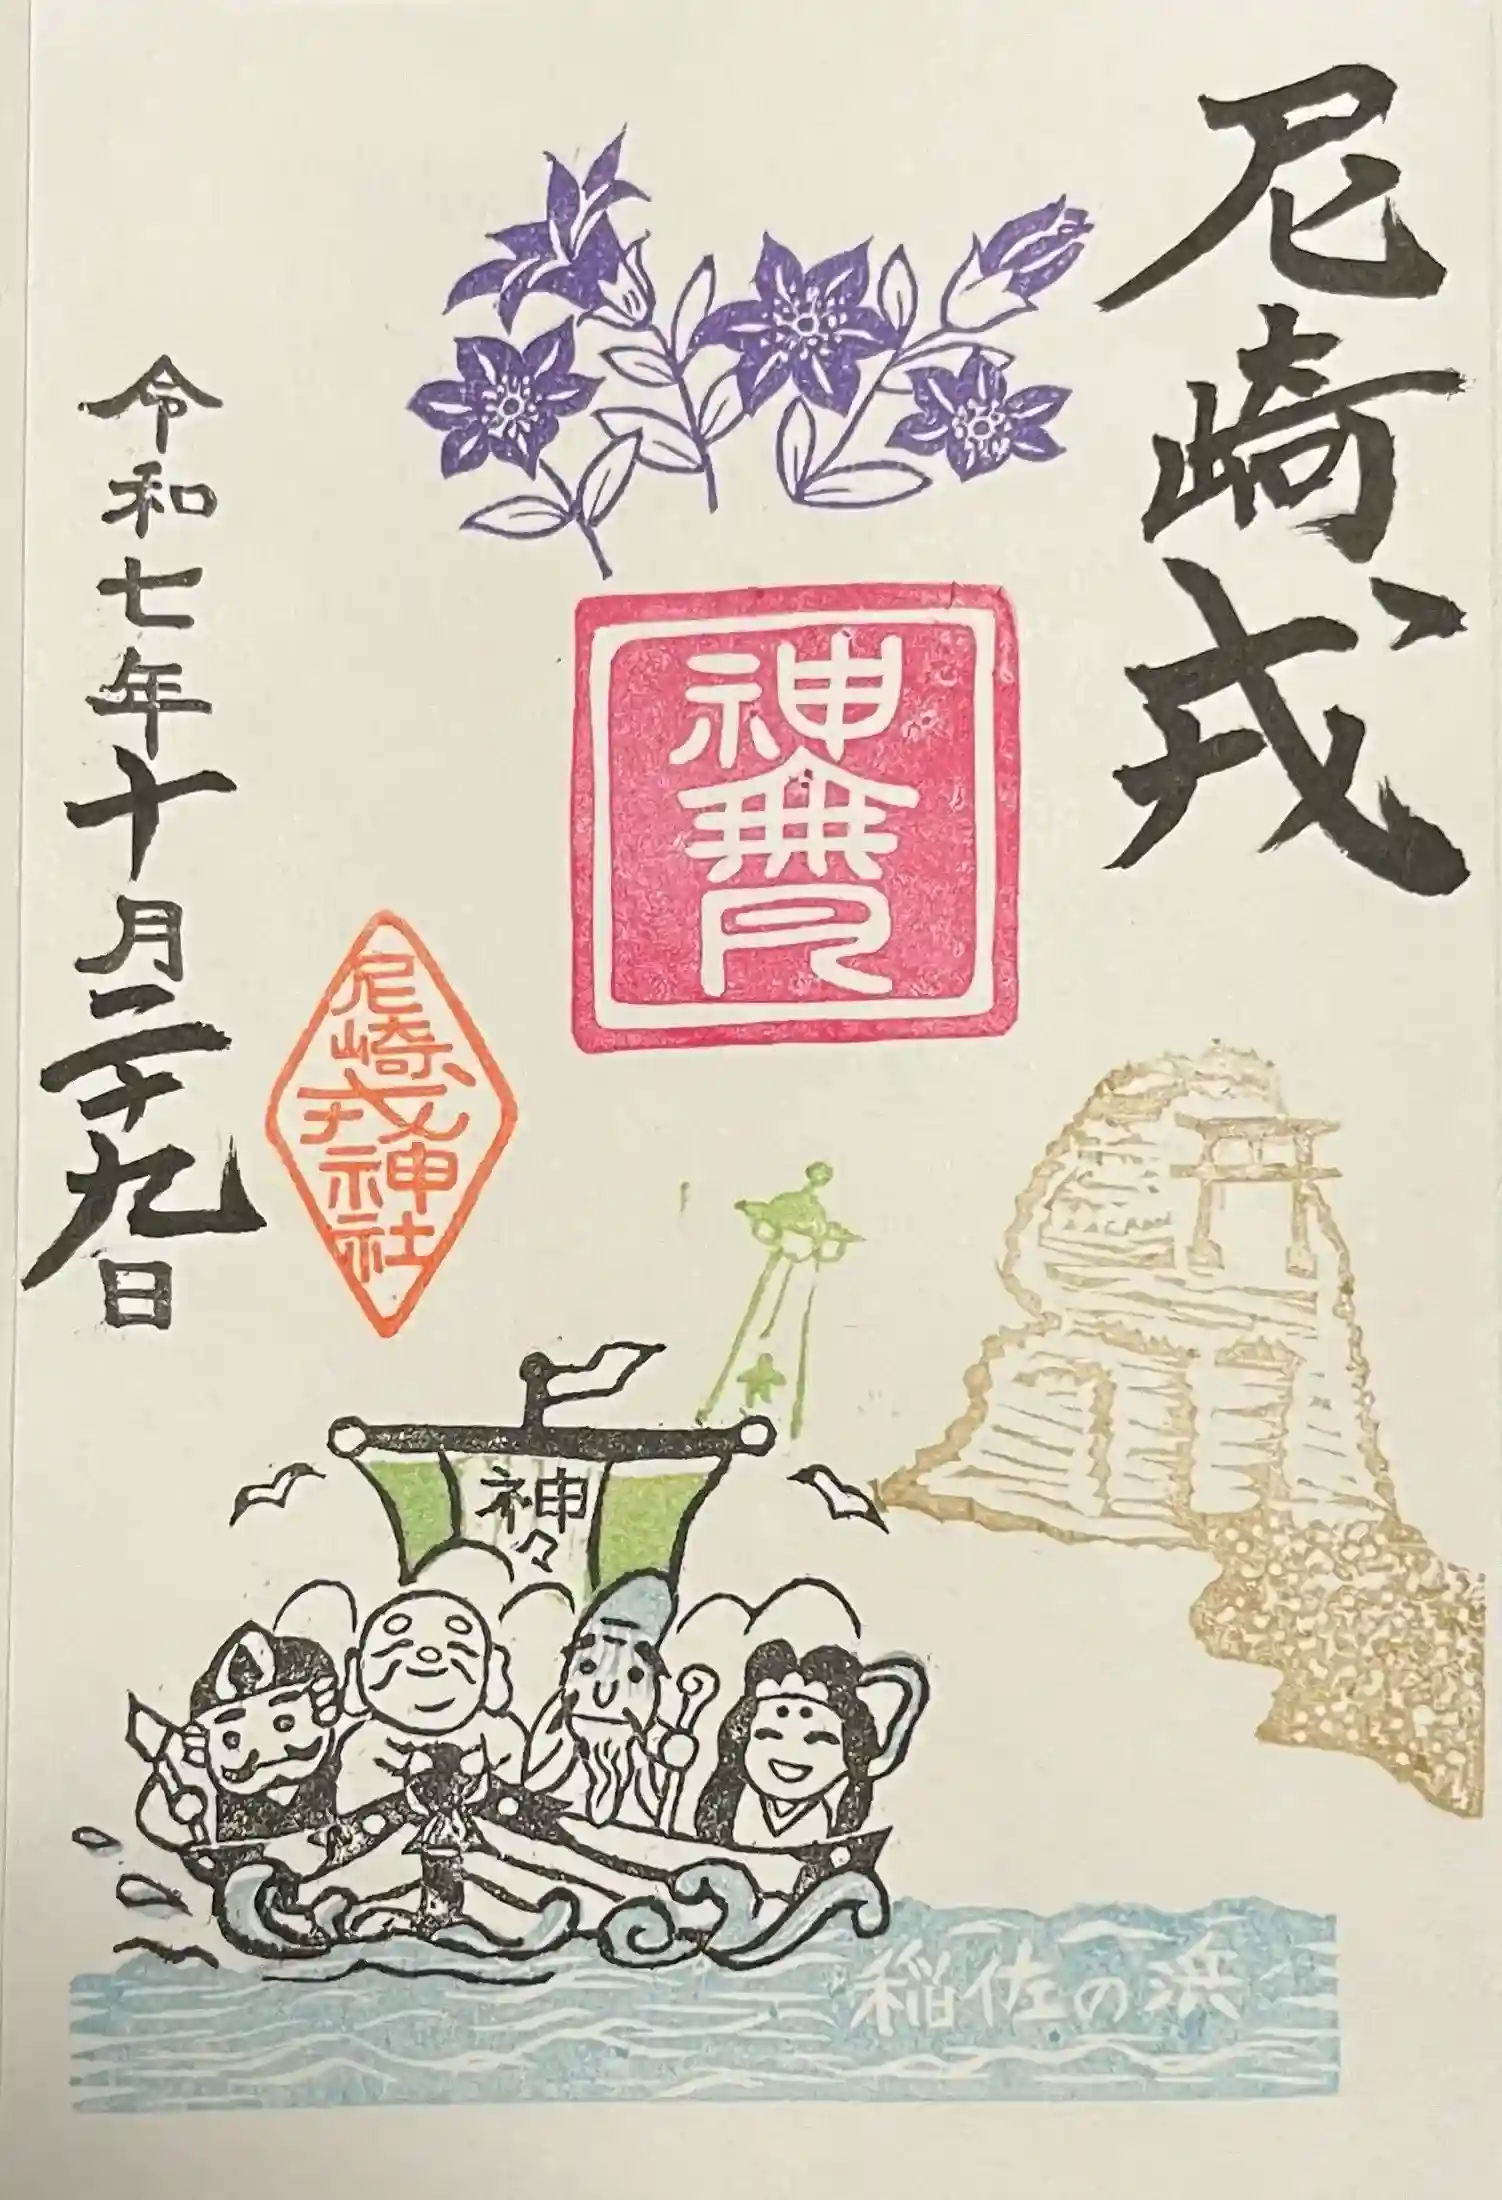 尼崎戎
神無月
令和七年十月二十九日
尼崎戎神社
神々
稲佐の浜